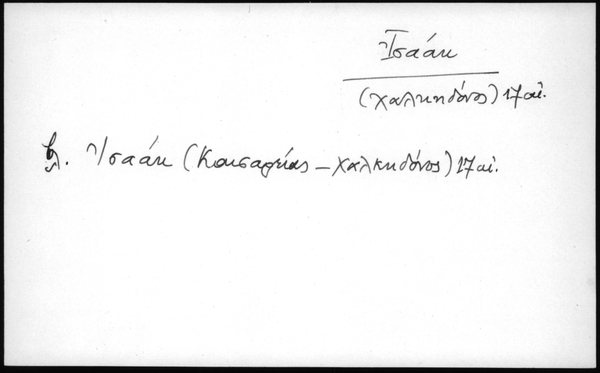 Ἰσαάκ
(Χαλκηδόνος) 17 αἰ.
βλ. Ἰσαάκ (Καισαρείας – Χαλκηδόνος) 17 αἰ.